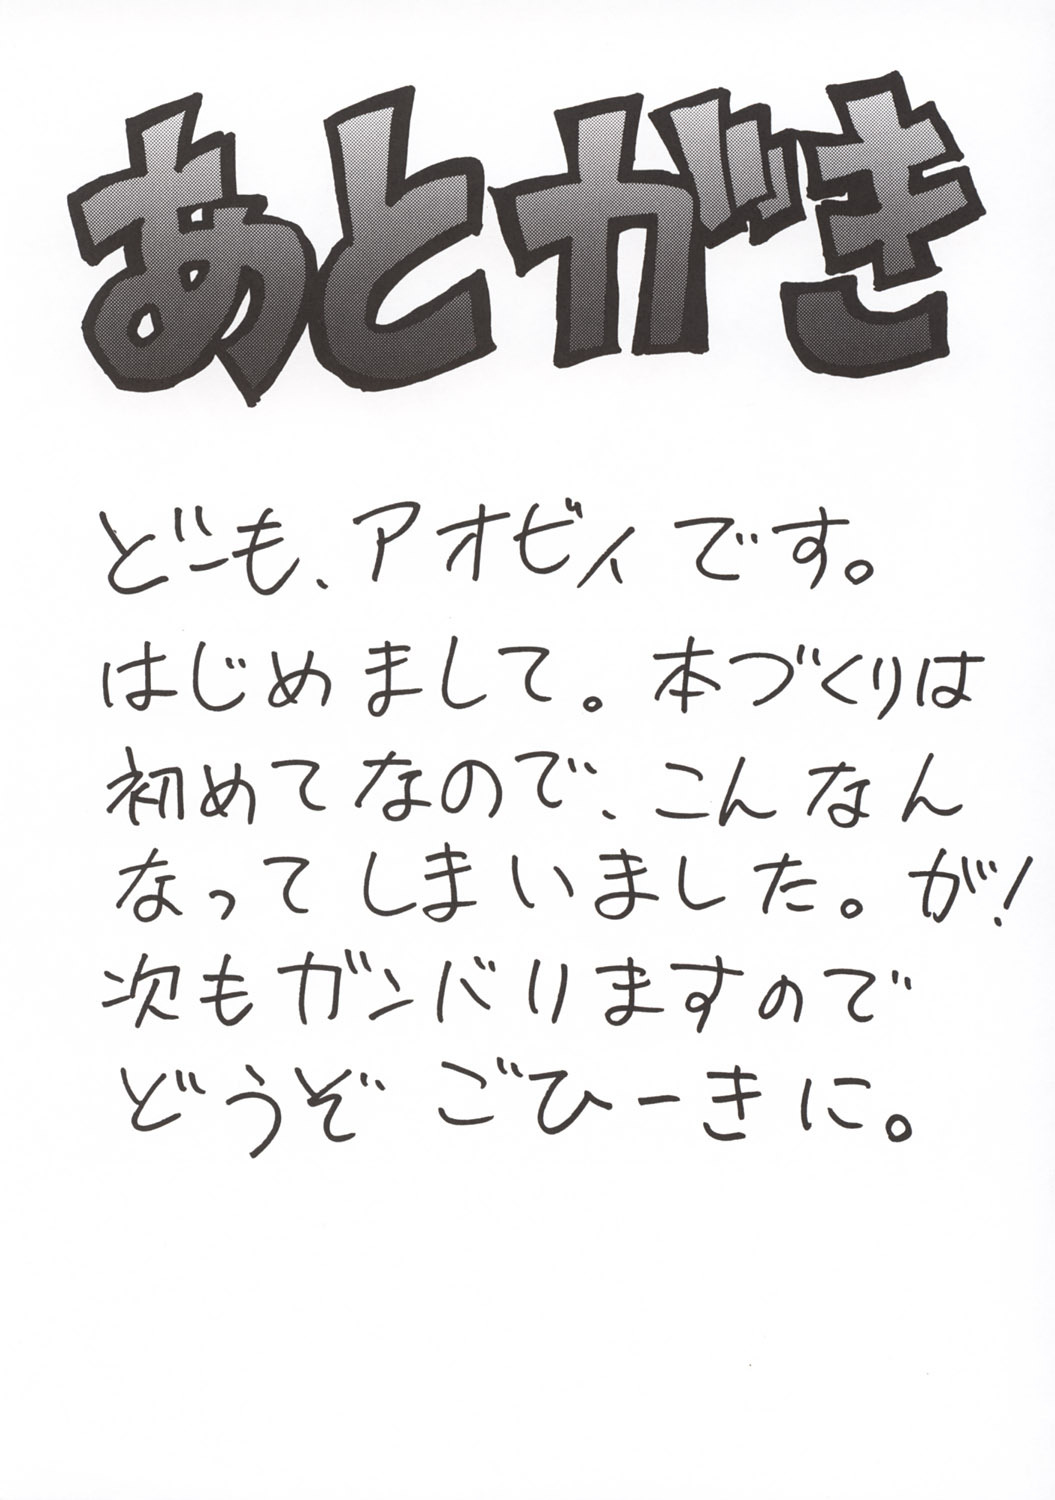 あとがき
どーも、アオビィです。
はじめまして。本づくりは
初めてなので、こんなん
なってしまいました。が!
次もガンバりますので
どうぞ ごひーきに。